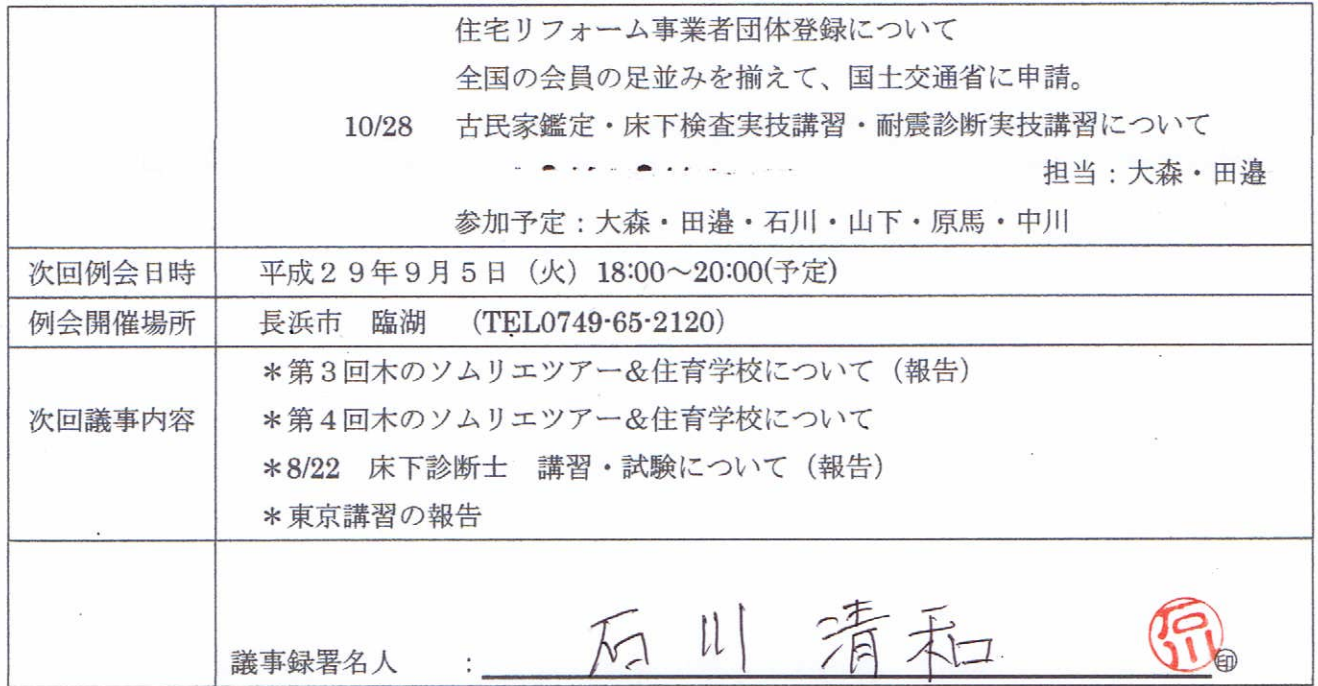 住宅リフォーム事業者団体登録について
全国の会員の足並みを揃えて、国土交通省に申請。
10/28 古民家鑑定・床下検査実技講習・耐震診断実技講習について
担当：大森・田邉
参加予定：大森・田邉・石川・山下・原馬・中川
次回例会日時 平成２９年９月５日（火）18:00～20:00(予定)
例会開催場所 長浜市　臨湖　（TEL0749-65-2120）
次回議事内容
＊第３回木のソムリエツアー&住育学校について（報告）
＊第４回木のソムリエツアー&住育学校について
＊8/22　床下診断士　講習・試験について（報告）
＊東京講習の報告
議事録署名人　：石川 清和 石川 ㊞